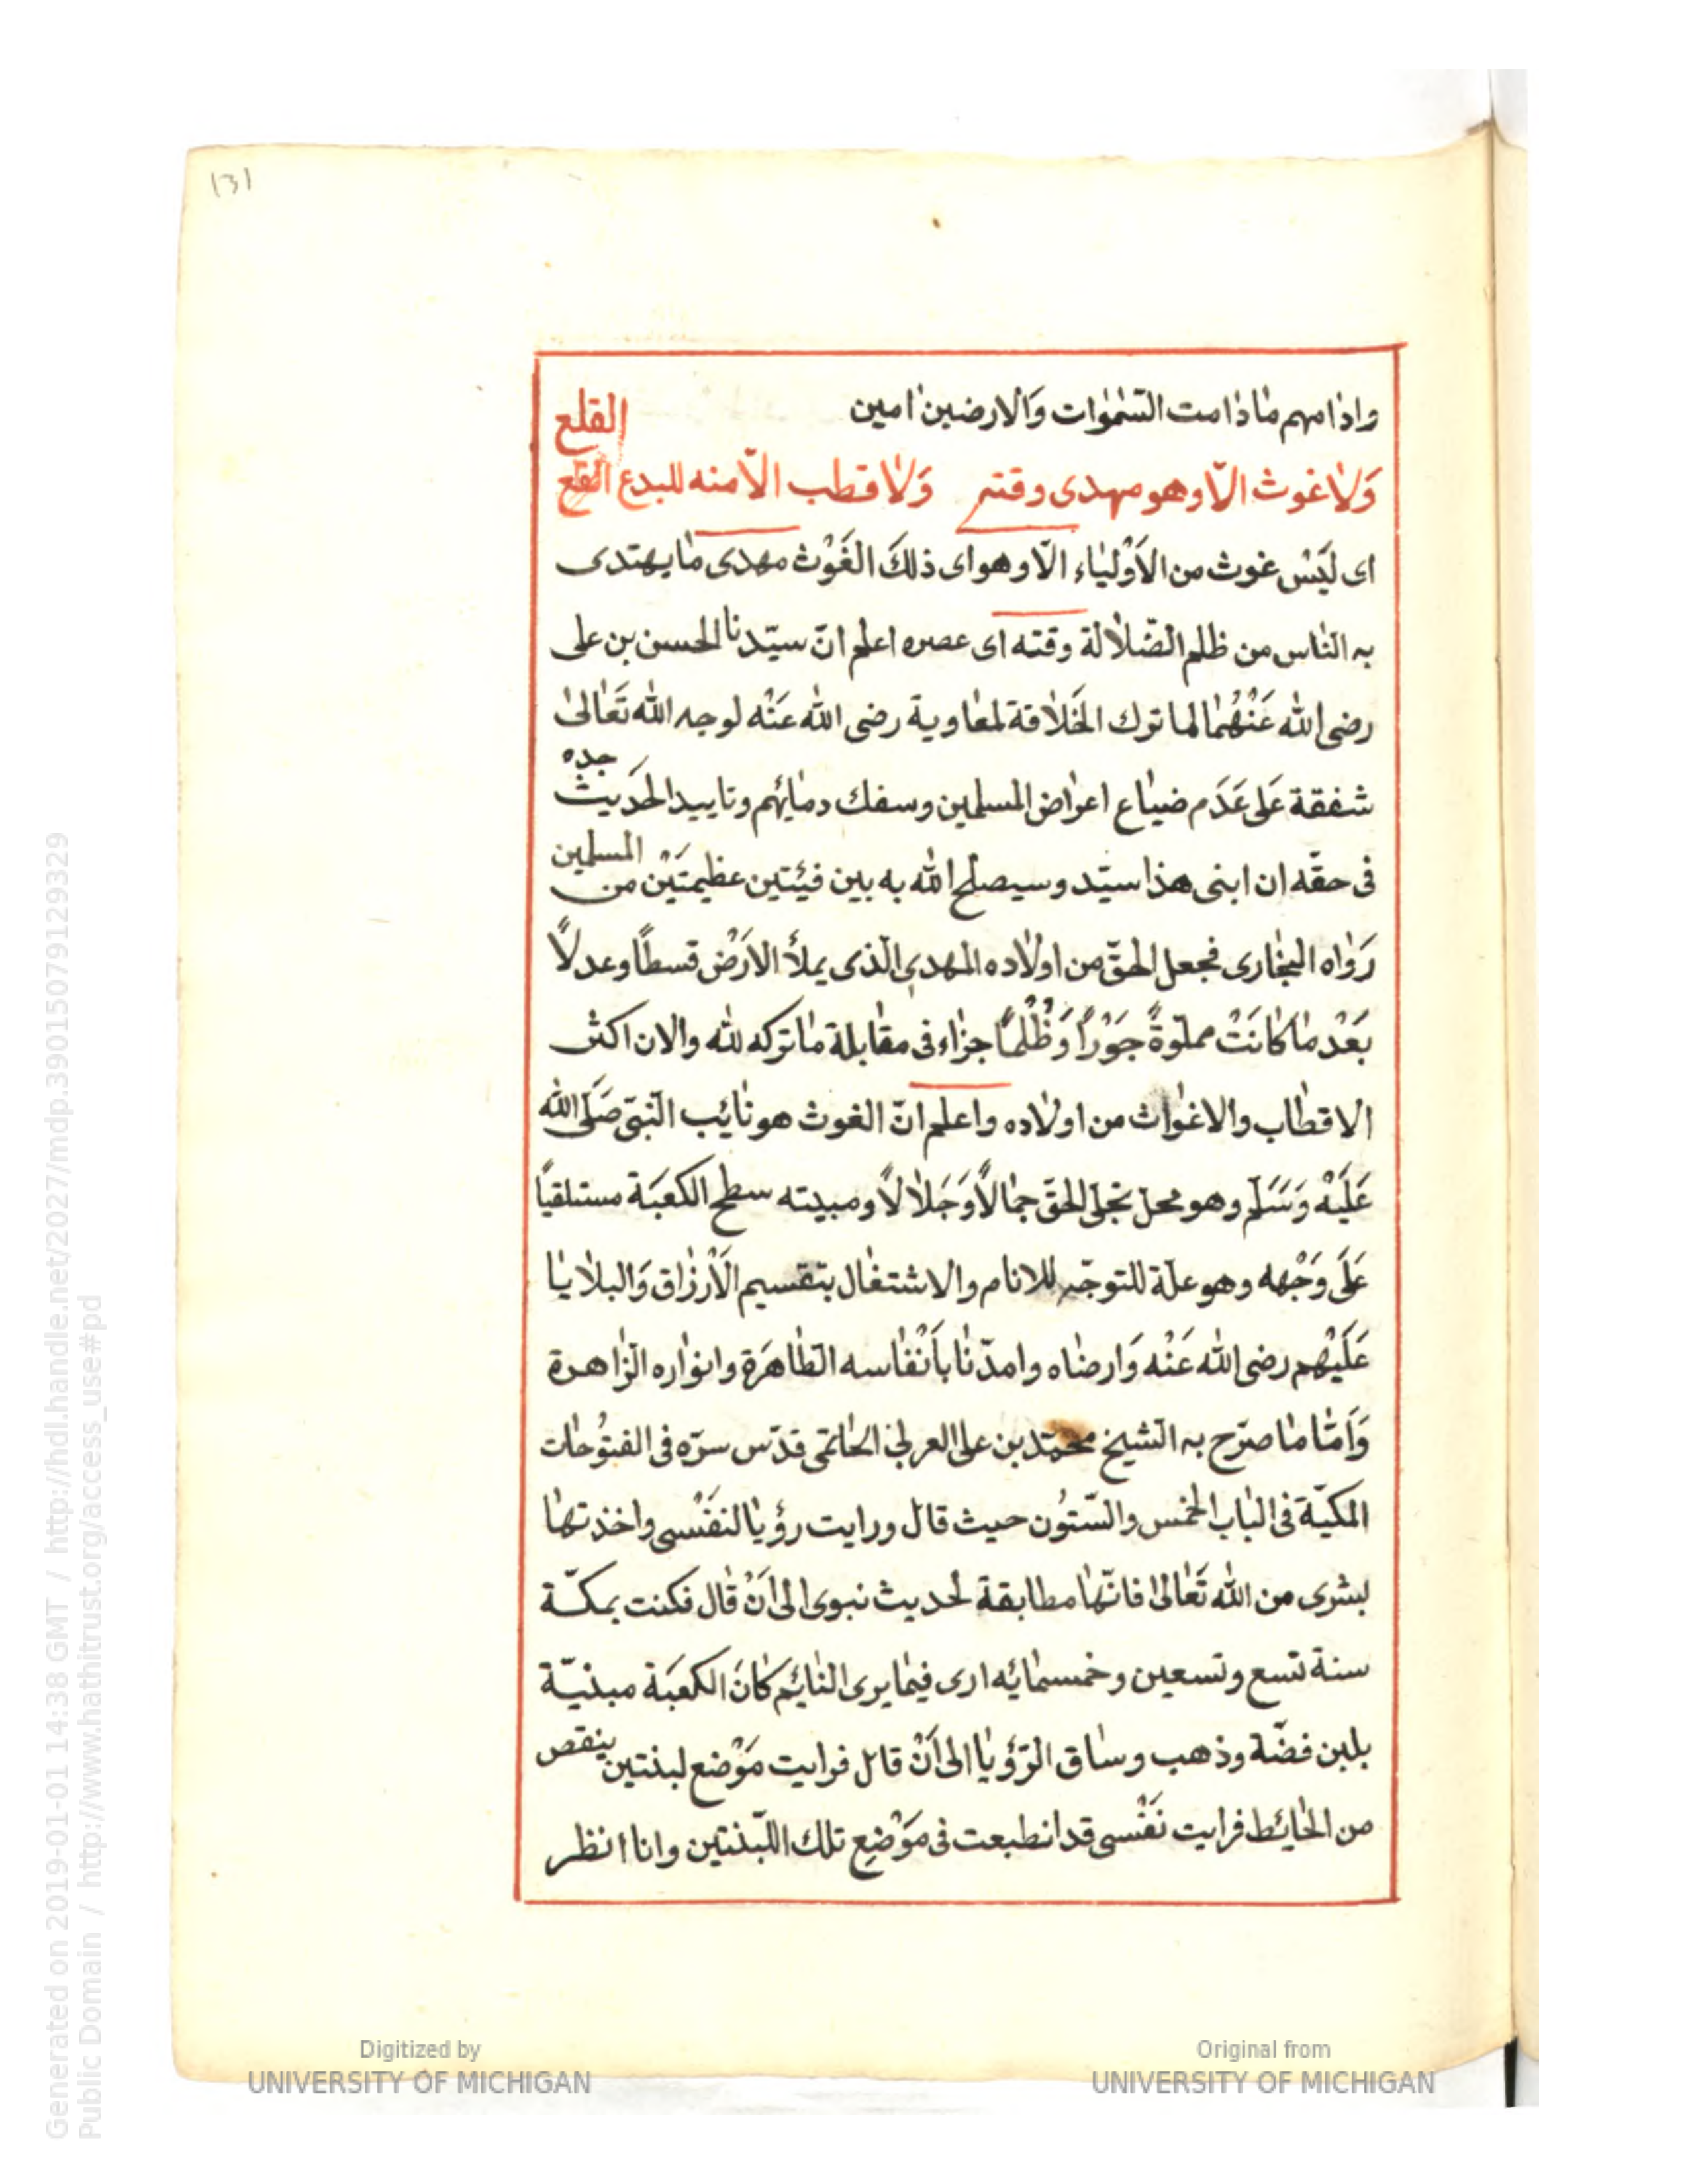 131
وادامهم مٰا دٰامت السّمٰوٰات وَالارضين اٰمين
القلع
وَلاٰ غوث الّا وهو مهدى وقته وَلاٰ قطب الّا منه للبدع القلع
اى لَيْسَ غوث من الاَوْليٰاء الّا وهو اى ذلكَ الغَوْث مهدى مٰا يهتدى
به النّاس من ظلم الضّلاٰلة وقته اى عصره اعلم انّ سيّدنا الحسن بن على
رضى الله عَنْهُمٰا لما ترك الخَلاٰفة لمعٰاوية رضى الله عَنْه لوجه الله تَعٰالىٰ
جده
شفقة عَلى عَدَم ضيٰاع اعرٰاض المسلمين وسفك دمٰائهم وتاييد الحَديث
المسلمين
فى حقّه ان ابنى هذا سيّد وسيصلح الله به بين فئيتين عظيمتَيْن من
رَوٰاه البخٰارى فجعل الحقّ من اولٰاده المهدى الّذى يملأ الارَضْ قسطًا وعدلًا
بَعْد مٰا كٰانَتْ مملوّةً جَوْرًا وَظُلْمًا جزٰاء فى مقابلة مٰا تركه لله والان اكثر
الاقطٰاب والاغوٰاث من اولٰاده واعلم انّ الغوث هو نٰائب النّبىّ صَلّى الله
عَلَيْه وَسَلّم وهو محلّ تجلّى الحقّ جمٰالًا وَجَلاٰلًا ومبيته سطح الكعبَة مستلقيًا
عَلَى وَجْهه وهو علّة للتوجّه للانام والاشتغٰال بتقسيم الَارْزٰاق وَالبلاٰيٰا
عَلَيْهم رضى الله عَنْه وَارضٰاه وامدّنٰا باَنْفٰاسه الطّاهَرة وانوٰاره الزّاهرة
وَامّٰا مٰا صرّح به الشيخ محمّد بن على العربى الحٰاتمى قدّس سرّه فى الفتوُحٰات
المكيّة فى البٰاب الخمس والسّتوُن حيث قال ورايت رؤيٰا لنفَسْى واخذتهٰا
بشرى من الله تَعٰالىٰ فانّهٰا مطابقة لحديث نبوى الى اَنْ قٰال فكنت بمكّة
سنة تسع وتسعين وخمسمٰائه ارى فيمٰا يرى النٰائم كاٰنَ الكعبَة مبنيّة
بلبن فضّة وذهب وسٰاق الرّؤيٰا الى اَنْ قال فرايت مَوْضع لبنتين ينقص
من الحٰائط فرايت نَفْسى قد انطبعت فى مَوْضِع تلك اللّبنتين وانا انظر
Digitized by
UNIVERSITY OF MICHIGAN
Original from
UNIVERSITY OF MICHIGAN
Generated on 2019-01-01 14:38 GMT / http://hdl.handle.net/2027/mdp.39015079129329
Public Domain / http://www.hathitrust.org/access_use#pd